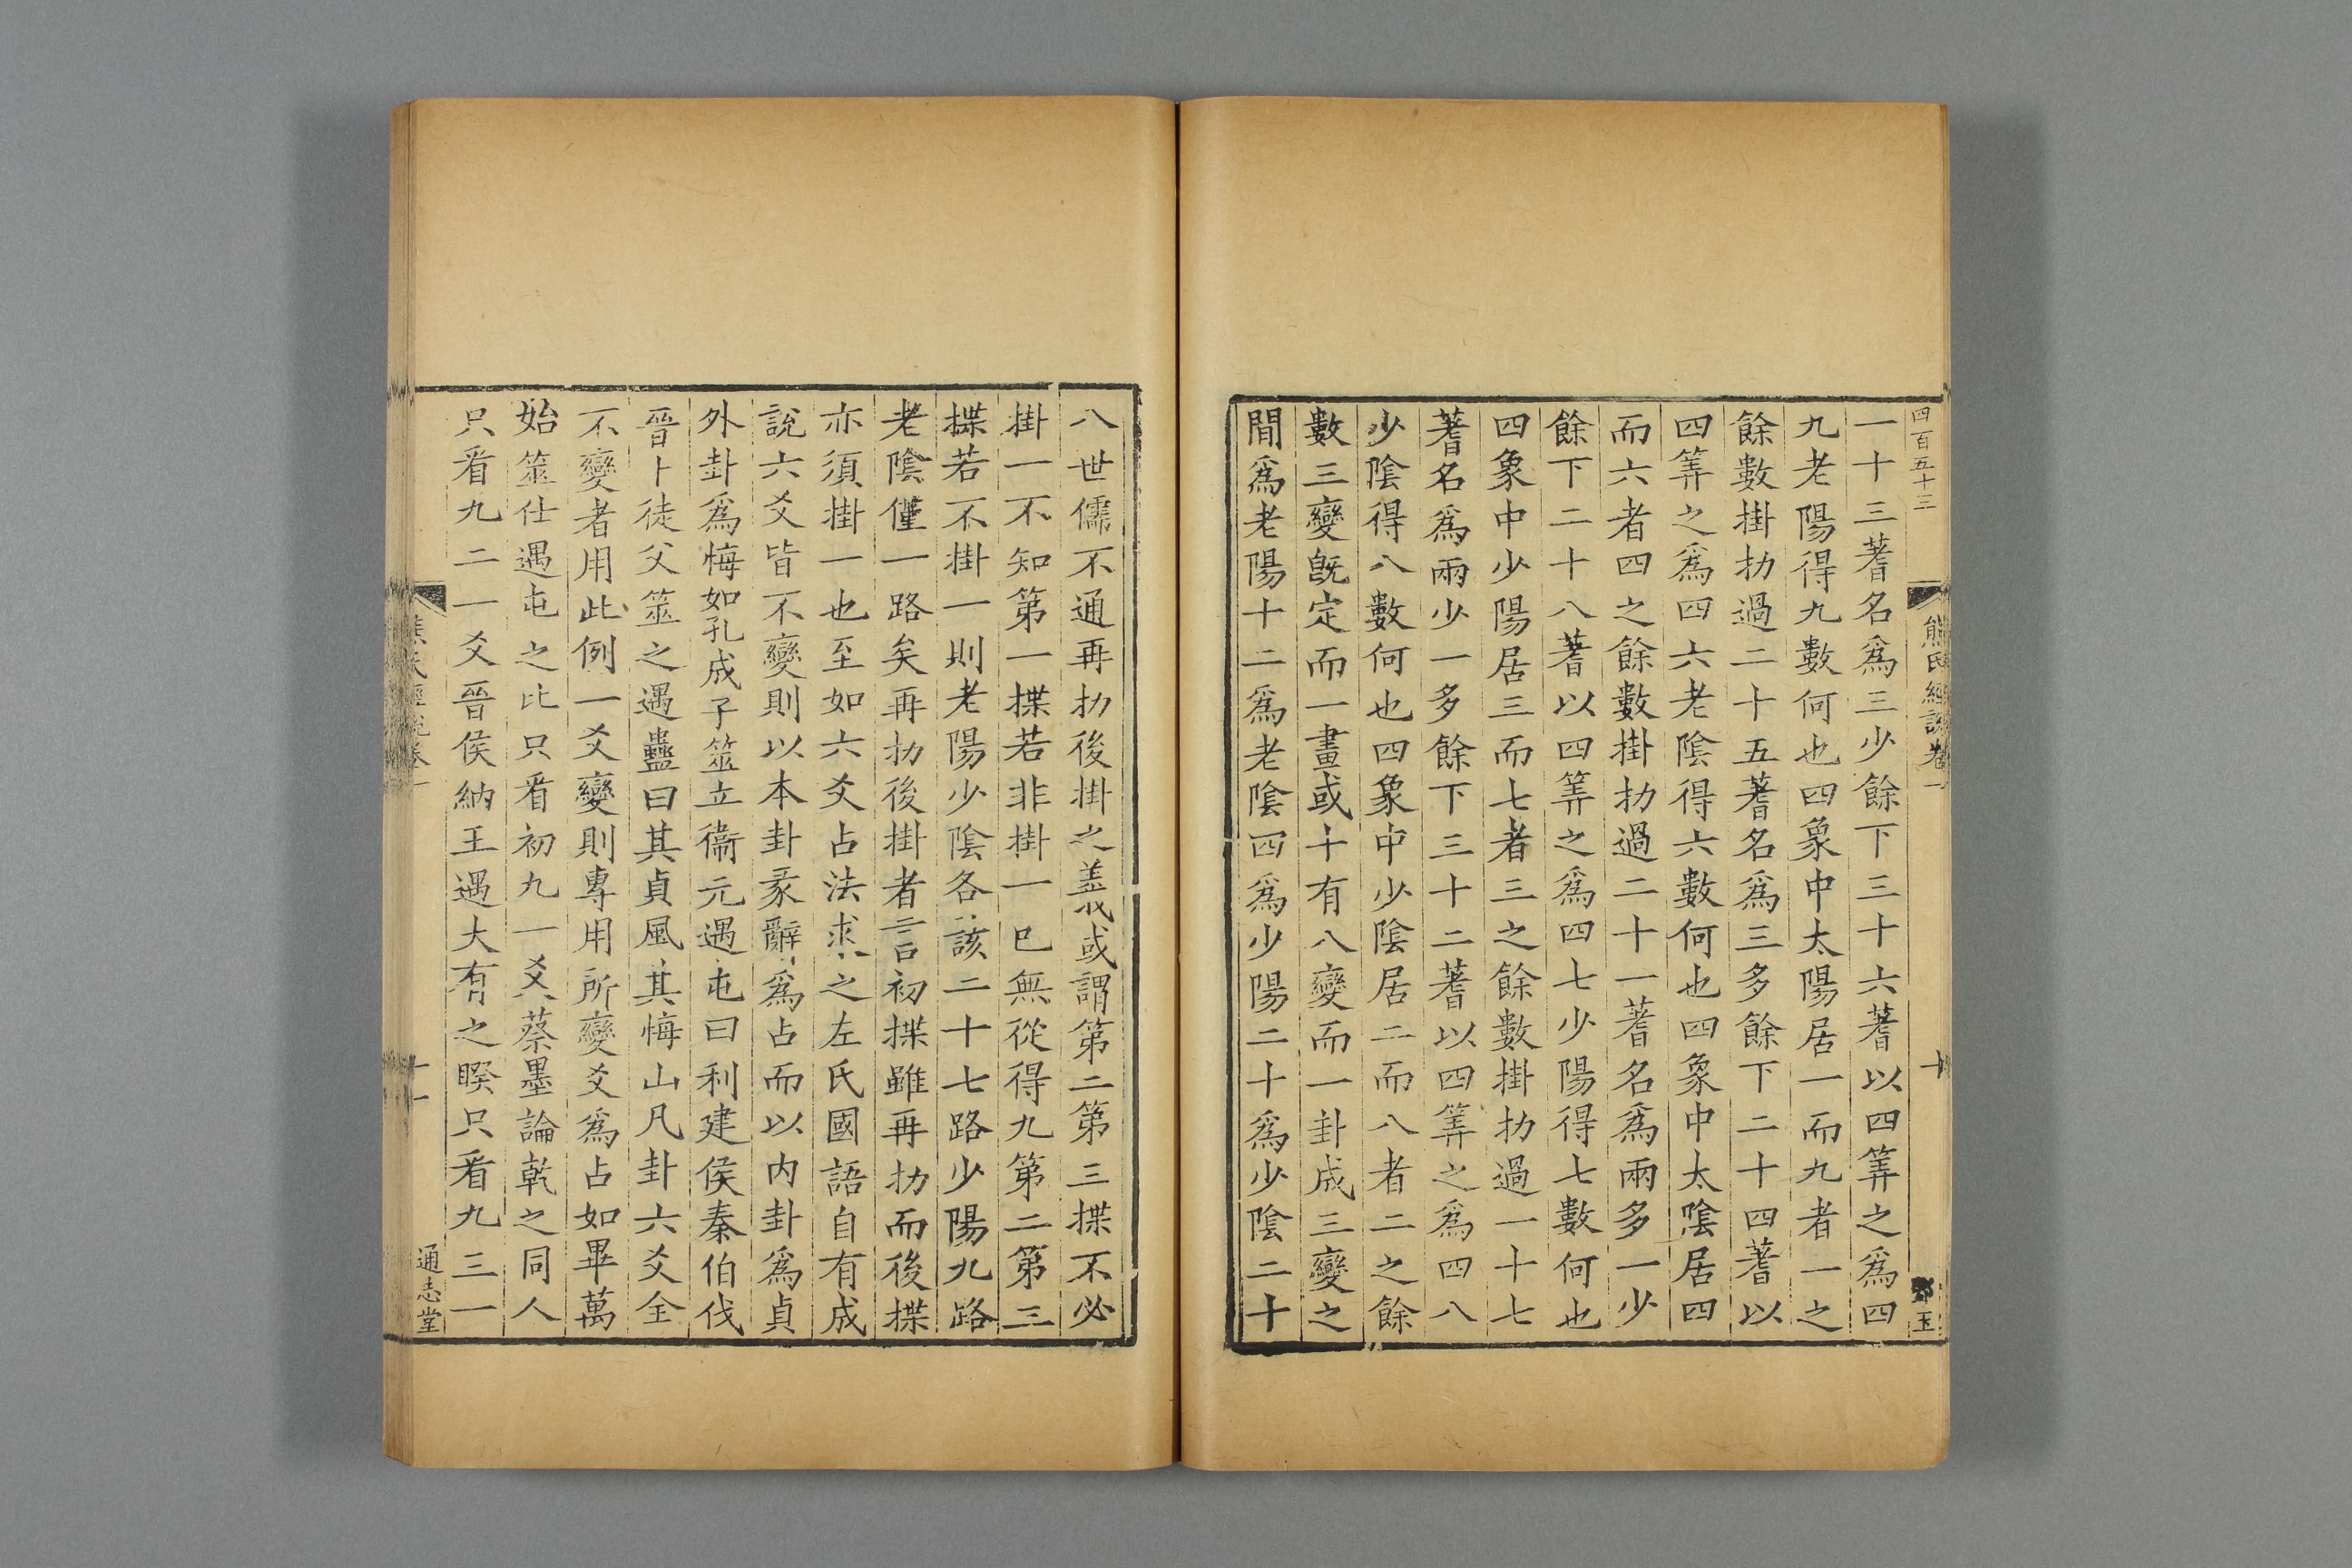 四百五十三
熊氏經說卷一
十
鄧玉
一十三蓍名爲三少餘下三十六蓍以四筭之爲四
九老陽得九數何也四象中太陽居一而九者一之
餘數掛扐過二十五蓍名爲三多餘下二十四蓍以
四筭之爲四六老陰得六數何也四象中太陰居四
而六者四之餘數掛扐過二十一蓍名爲兩多一少
餘下二十八蓍以四筭之爲四七少陽得七數何也
四象中少陽居三而七者三之餘數掛扐過一十七
蓍名爲兩少一多餘下三十二蓍以四筭之爲四八
少陰得八數何也四象中少陰居二而八者二之餘
數三變旣定而一畫或十有八變而一卦成三變之
間爲老陽十二爲老陰四爲少陽二十爲少陰二十
八世儒不通再扐後掛之義或謂第二第三揲不必
掛一不知第一揲若非掛一已無從得九第二第三
揲若不掛一則老陽少陰各該二十七路少陽九路
老陰僅一路矣再扐後掛者言初揲雖再扐而後揲
亦須掛一也至如六爻占法求之左氏國語自有成
說六爻皆不變則以本卦彖辭爲占而以内卦爲貞
外卦爲悔如孔成子筮立衞元遇屯曰利建侯秦伯伐
晉卜徒父筮之遇蠱曰其貞風其悔山凡卦六爻全
不變者用此例一爻變則專用所變爻爲占如畢萬
始筮仕遇屯之比只看初九一爻蔡墨論乾之同人
只看九二一爻晉侯納王遇大有之睽只看九三一
熊氏經說卷一
十一
通志堂